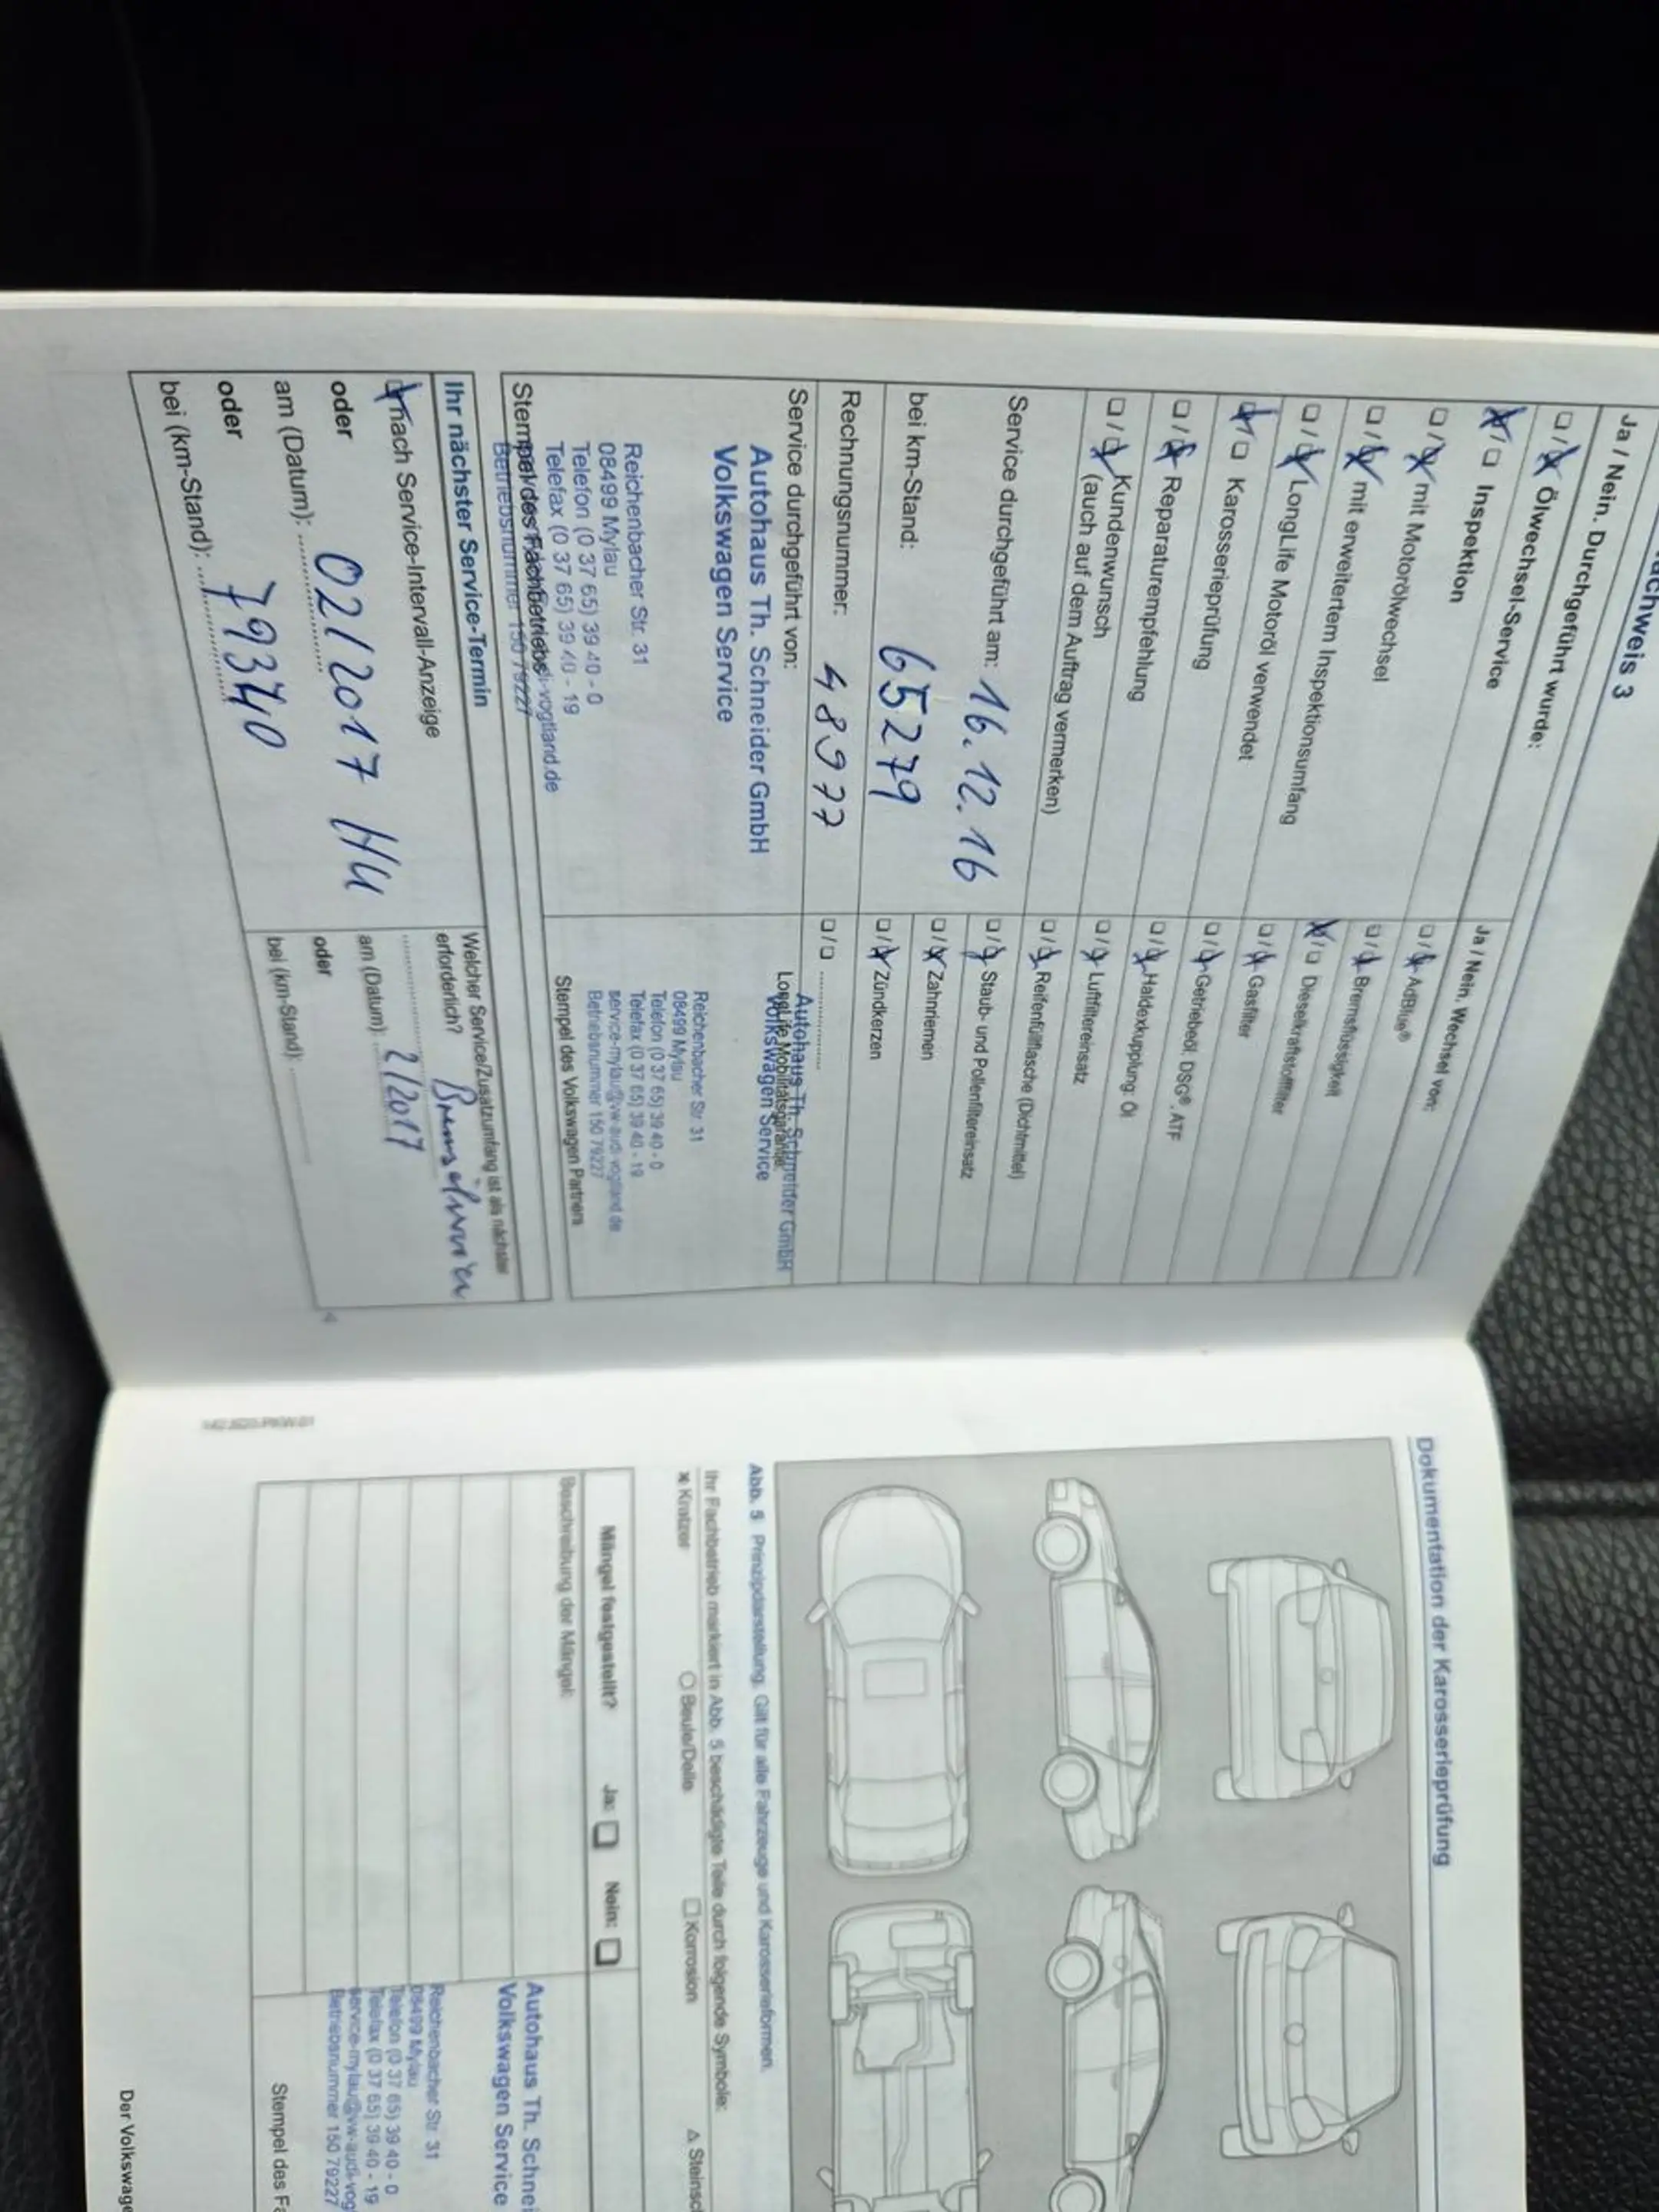 achweis 3
Ja / Nein. Durchgeführt wurde:
Ölwechsel-Service
Inspektion
mit Motorölwechsel
mit erweitertem Inspektionsumfang
LongLife Motoröl verwendet
Karosserieprüfung
Reparaturempfehlung
Kundenwunsch
(auch auf dem Auftrag vermerken)
Service durchgeführt am: 16.12.16
bei km-Stand: 65279
Rechnungsnummer: 48977
Service durchgeführt von:
Autohaus Th. Schneider GmbH
Volkswagen Service
Reichenbacher Str. 31
08499 Mylau
Telefon (0 37 65) 39 40 - 0
Telefax (0 37 65) 39 40 - 19
Betriebsnummer 150 79227
Stempel des Fachbetriebs
Ja / Nein. Wechsel von:
AdBlue®
Bremsflüssigkeit
Dieselkraftstofffilter
Gasfilter
Getriebeöl: DSG®, ATF
Haldexkupplung: Öl
Luftfiltereinsatz
Reifenfüllflasche (Dichtmittel)
Staub- und Pollenfiltereinsatz
Zahnriemen
Zündkerzen
LongLife Mobilitätsgarantie
Autohaus Th. Schneider GmbH
Volkswagen Service
Reichenbacher Str 31
08499 Mylau
Telefon (0 37 65) 39 40 - 0
Telefax (0 37 65) 39 40 - 19
service-mylau@vw-audi-vogtland.de
Betriebsnummer 150 79227
Stempel des Volkswagen Partners
Ihr nächster Service-Termin
nach Service-Intervall-Anzeige
oder
am (Datum): 02/2017 HU
oder
bei (km-Stand): 79340
Welcher Service/Zusatzumfang ist als nächster
erforderlich?
am (Datum): 2/2017
oder
bei (km-Stand):
4
Dokumentation der Karosserieprüfung
Abb. 5 Prinzipdarstellung: Gilt für alle Fahrzeuge und Karosserieformen.
Ihr Fachbetrieb markiert in Abb. 5 beschädigte Teile durch folgende Symbole:
x Kratzer
O Beule/Delle
Korrosion
Δ Steinsc
Mängel festgestellt? Ja: Nein:
Beschreibung der Mängel:
Autohaus Th. Schnei
Volkswagen Service
Reichenbacher Str 31
08499 Mylau
Telefon (0 37 65) 39 40 - 0
Telefax (0 37 65) 39 40 - 19
service-mylau@vw-audi-vog
Betriebsnummer 150 79227
Stempel des Fa
Der Volkswage